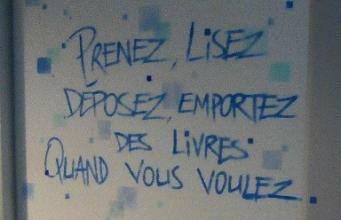 PRENEZ, LISEZ
DÉPOSEZ, EMPORTEZ
DES LIVRES
QUAND VOUS VOULEZ